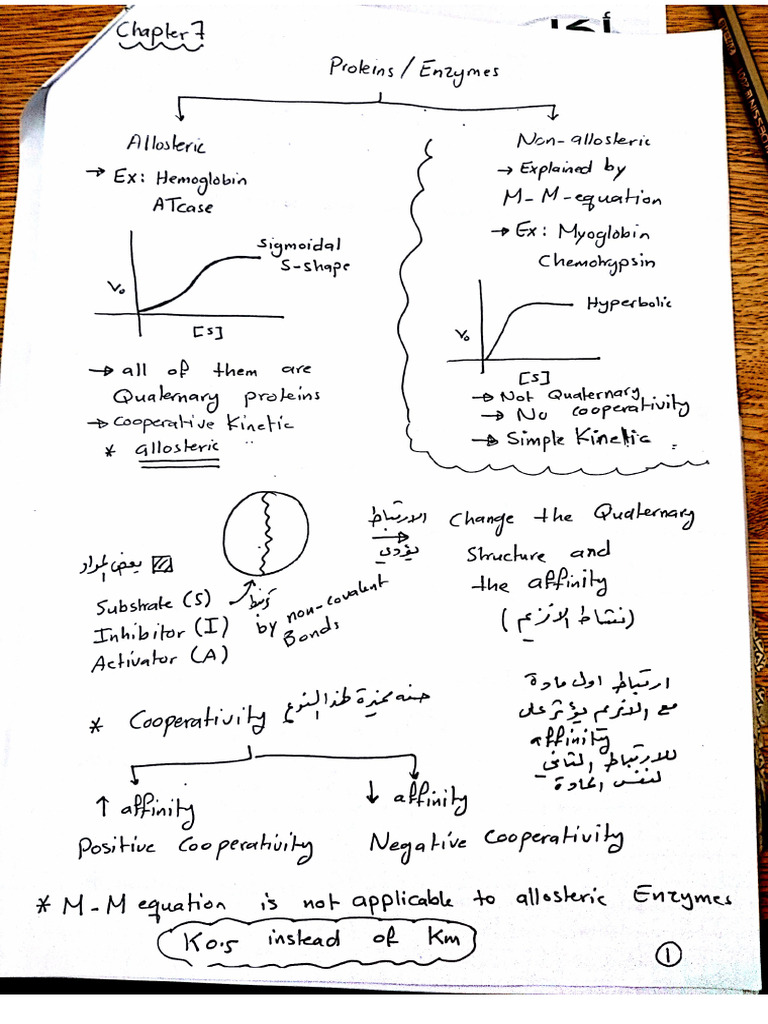 Chapter 7
Proteins / Enzymes
Allosteric
→ Ex: Hemoglobin
ATcase
Sigmoidal
S-shape
V₀
[S]
→ all of them are
Quaternary proteins
→ Cooperative Kinetic
* allosteric
Non-allosteric
→ Explained by
M-M-equation
→ Ex: Myoglobin
Chemotrypsin
Hyperbolic
V₀
[S]
→ Not Quaternary
→ No cooperativity
→ Simple Kinetic
بعض المواد
Substrate (S)
Inhibitor (I)
Activator (A)
ترتبط
by non-covalent
Bonds
الارتباط
يؤدي
Change the Quaternary
Structure and
the affinity
(نشاط الانزيم)
* Cooperativity صفه مميزة لهذا النوع
ارتباط اول مادة
مع الانزيم يؤثر على
affinity
للارتباط الثاني
لنفس المادة
↑ affinity
Positive Cooperativity
↓ affinity
Negative Cooperativity
* M-M equation is not applicable to allosteric Enzymes
K0.5 instead of Km
1